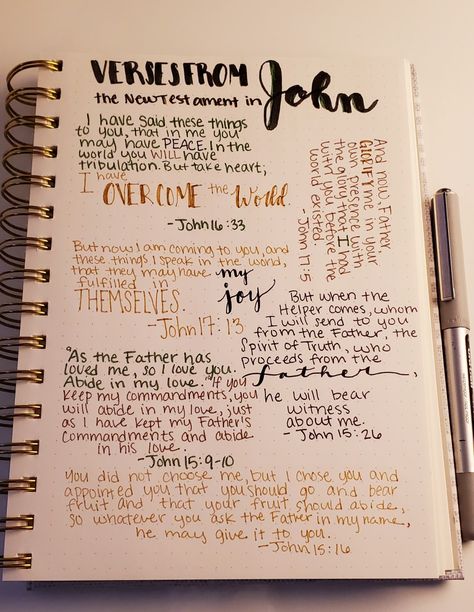 VERSES FROM
the New Testament in John
I have said these things
to you, that in me you
may have PEACE. In the
world you WILL have
tribulation. But take heart;
I have
OVERCOME the World.
- John 16:33
And now, Father,
GLORIFY me in your
own presence with
the glory that I had
with you before the
world existed.
- John 17:5
But now I am coming to you, and
these things I speak in the world,
that they may have my
joy
fulfilled in
THEMSELVES.
- John 17:13
But when the
Helper comes, whom
I will send to you
from the Father, the
Spirit of Truth, who
proceeds from the
father,
he will bear
witness
about me.
- John 15:26
"As the Father has
loved me, so I love you.
Abide in my love. "If you
keep my commandments, you
will abide in my love, just
as I have kept my Father's
Commandments and abide
in his love.
- John 15:9-10
You did not choose me, but I chose you and
appointed you that you should go and bear
fruit and that your fruit should abide,
so whatever you ask the Father in my name,
he may give it to you.
- John 15:16